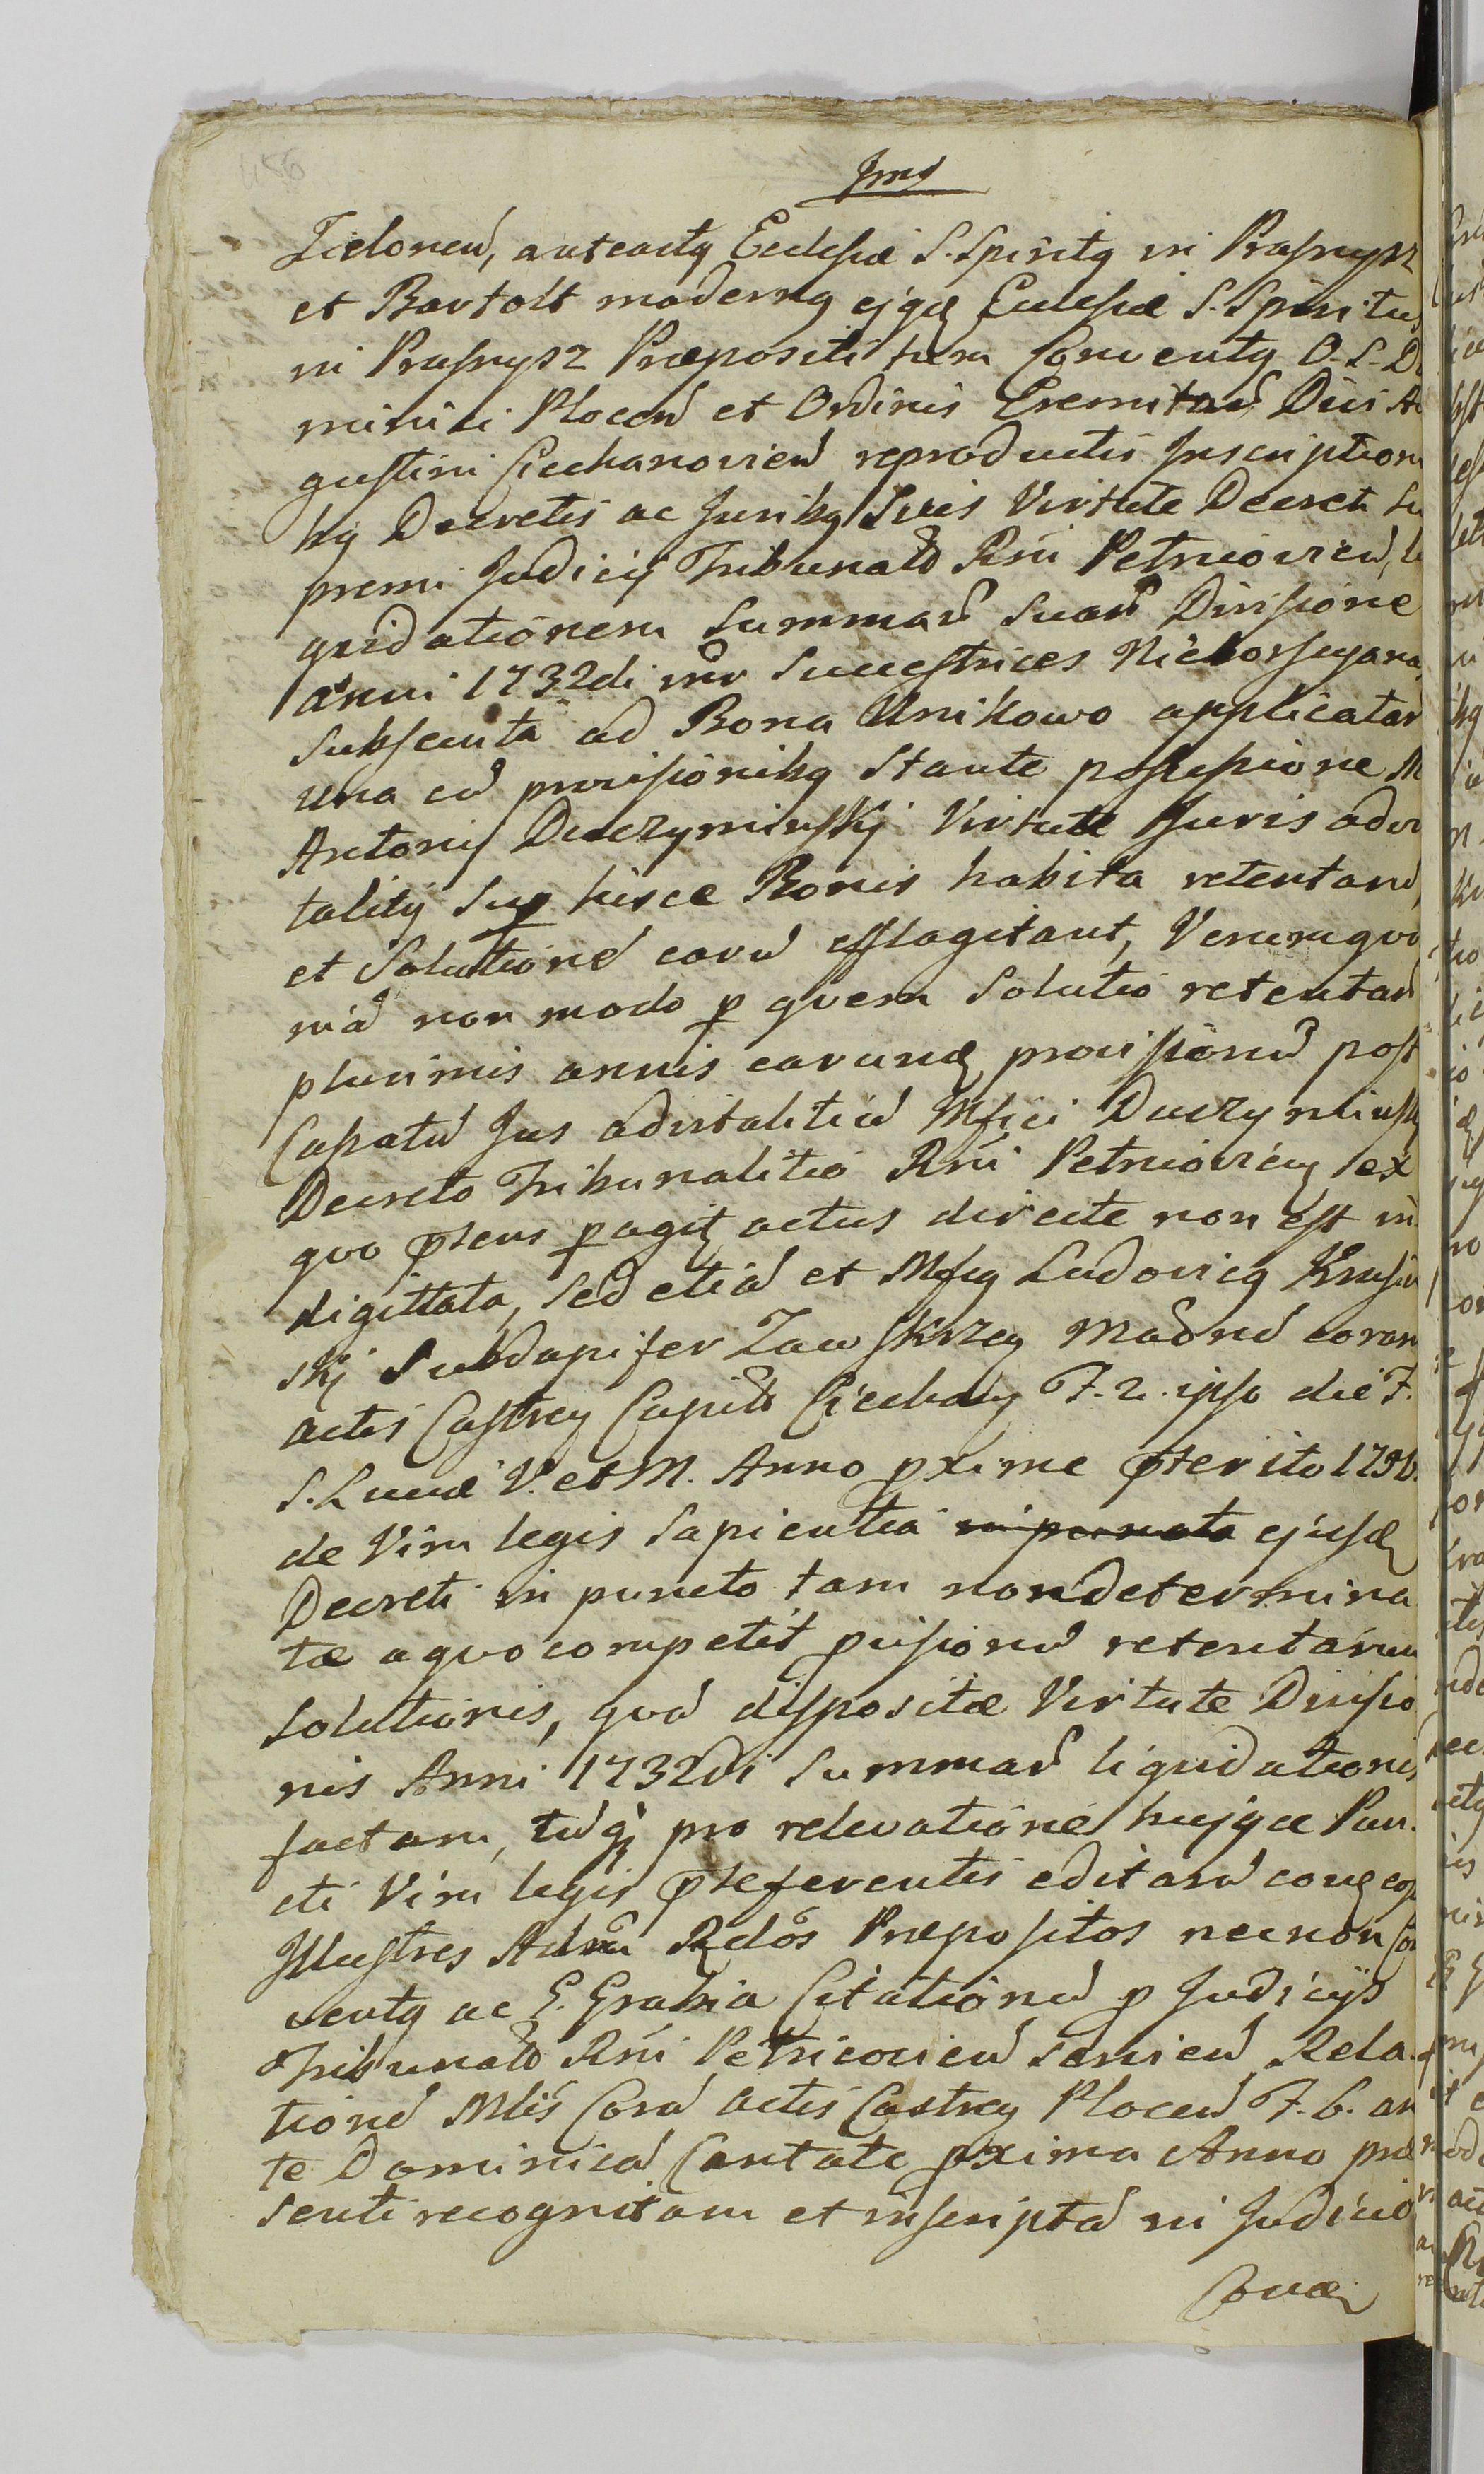 456
Jms
Zielonen, anteactq Ecclesiæ S. Spiritq in Prasnysz
et Bartolt modernq ejqd Ecclesiæ S. Spiritus
in Prasnysz Præpositi nem Conventq O. S. Do
minici Plocen et Ordinis Eremitar Divi Au
gustini Ciechanovien reproductis Inscription
bq Decretis ac Juribq Suis Virtute Decreti Su
premi Judicij Tribunalis Rni Petricovien, li
quidationem Summar Suar Divisione
anni 1732di inr Succestrices
subsecuta ad Bona Unikowo applicatar
una cu provisionibq stante possessione M
Antonij Duczyminskj Virtute Juris advi
talitij Sup hisce Bonis habita retentaru,
et Solutione earu efflagitant, Verum quo
nia non modo p quem Solutio retentar
plurimis annis earund provisionu post
Cassatu Jus advitalitiu Mfici Duczyminskj
Decreto Tribunalitio Rni Petricovien ex
quo pntens pagitr actus directe non est in
digittata, sed etia et Mfcq Ludovicq Krasin
skj Subdapifer Zawskrzen Madnu coram
actis Castren Capit Ciechan F. 2. ipso die F.
S. Luciæ V. et M. Anno pxime pterito 175
de Vim legis sapientia ejusd
Decreti in puncto tam nondetermina
tæ aquocompetit pvisionu retentarum
solutionis, qua dispositæ Virtute Divisio
nis Anni 1732di Summar liquidationis
factam, tuq pro relevatione hujqce Pun
cti Vim legis pseferentis editaru conq eos
Illustres Adm Rdos Præpositos necnon Con
ventq ac G. Grabia Citationu p Judicijs
Tribunalis Rni Petricovien servien Rela
tione Mlis Cora actis Castren Plocen F. 6. an
te Dominica Cantate pxima Anno præ
senti recognitam et inscripta in Judicio
Cora